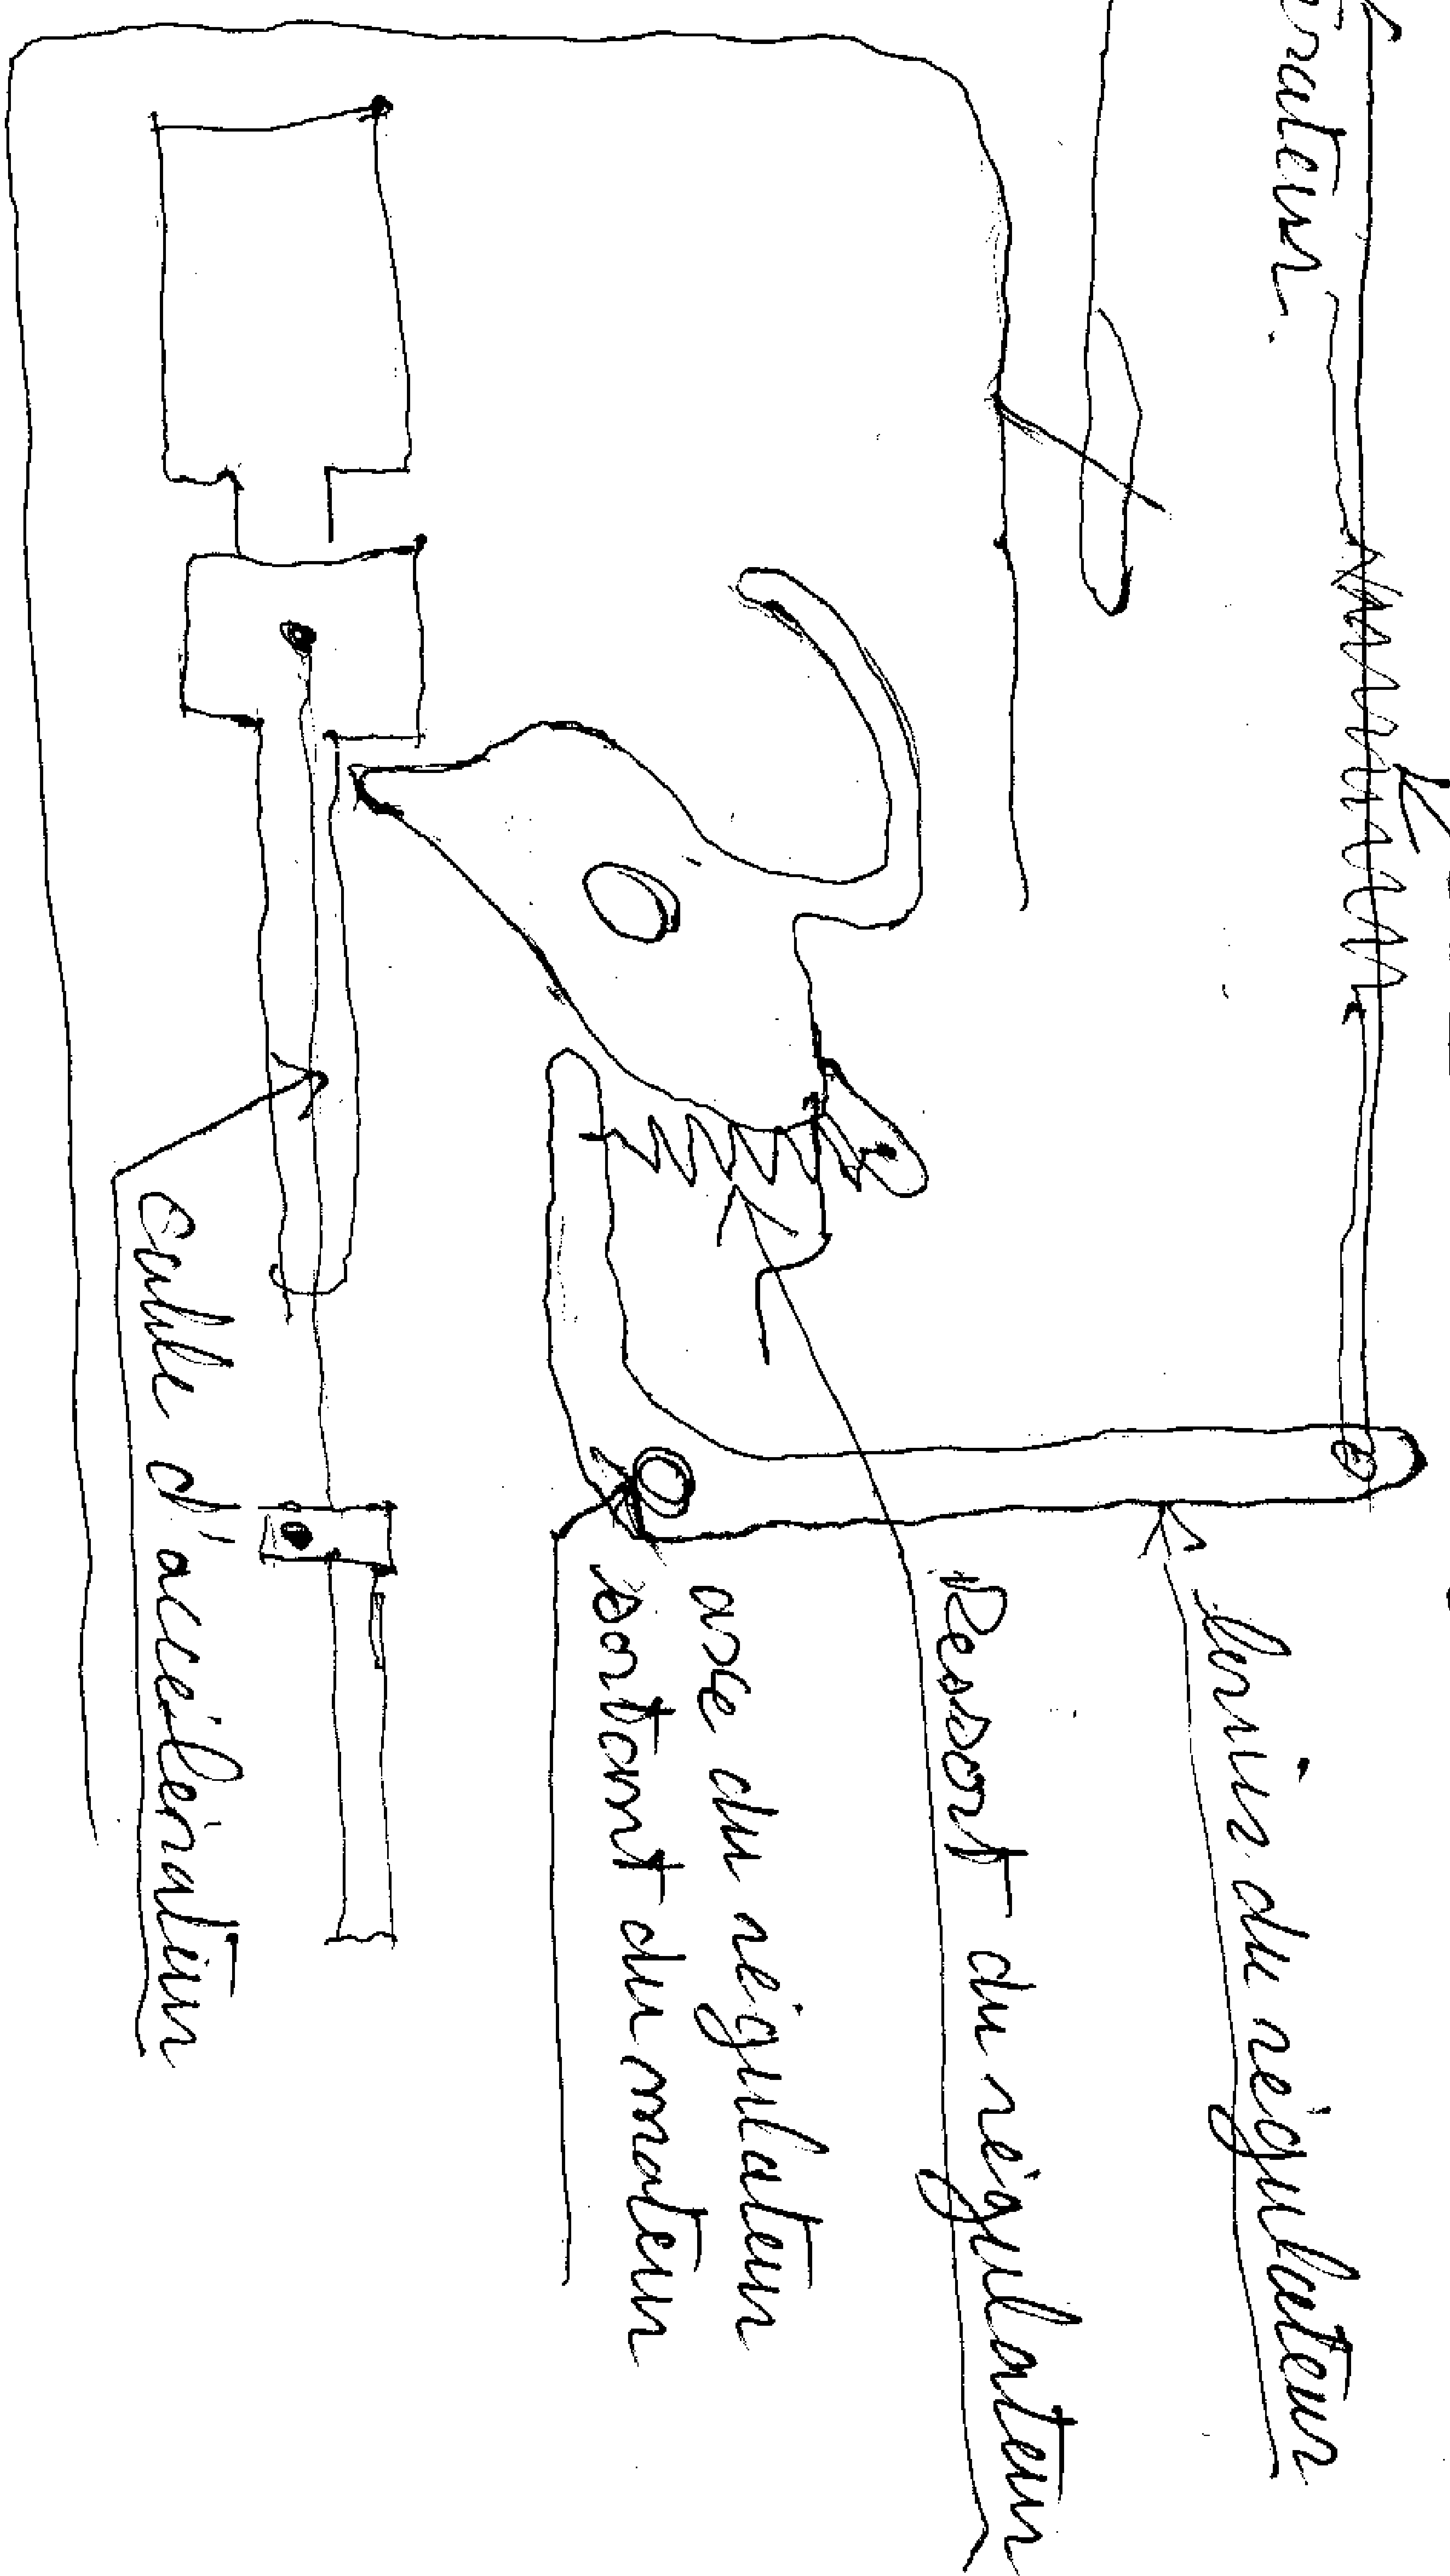 du régulateur
Ressort du régulateur
axe du régulateur
sortant du moteur
cable d'accélérateur